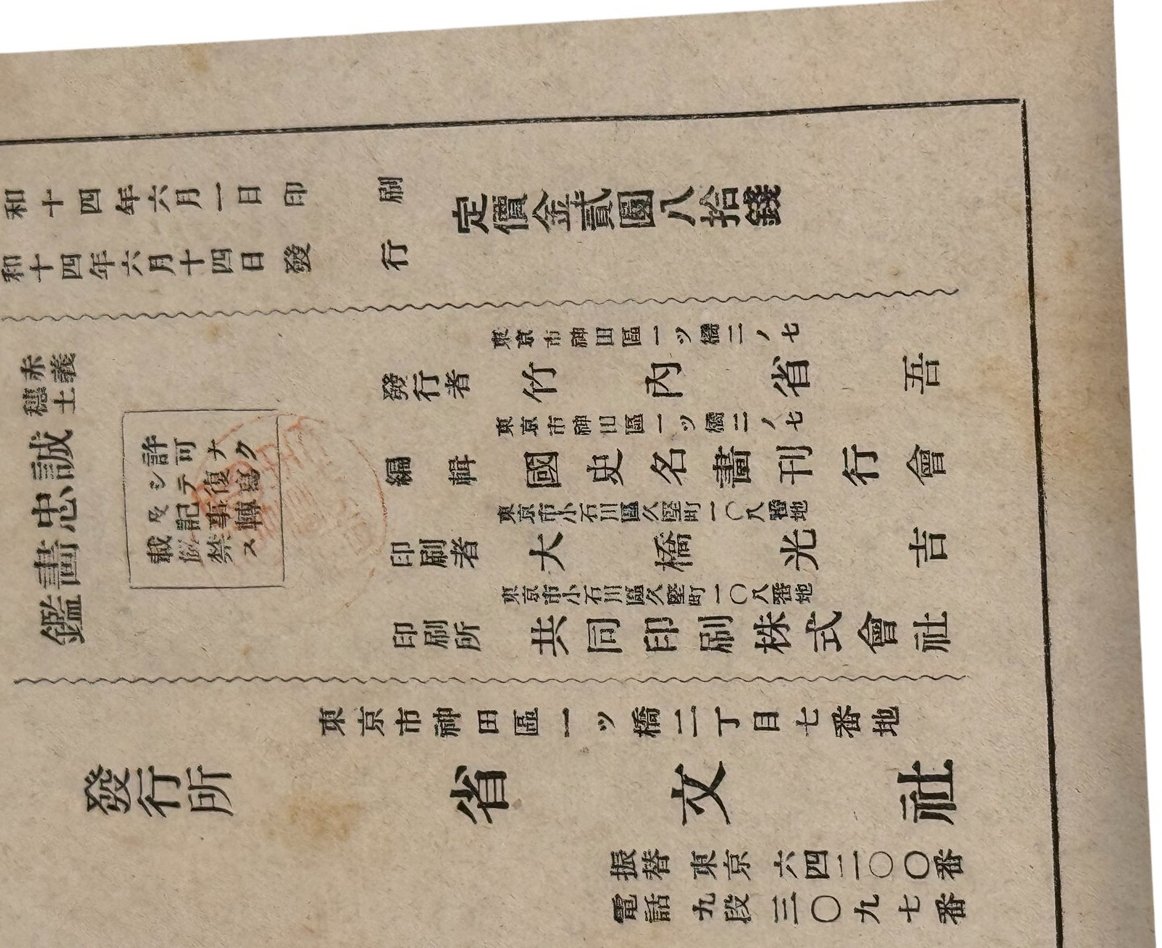 和十四年六月一日印刷
和十四年六月十四日發行
定價金貳圓八拾錢
赤穗
義士
誠忠畫鑑
許可ナク
シテ復寫
及記事轉
載禁ス
東京市神田區一ツ橋二ノ七
發行者 竹內省吾
東京市神田區一ツ橋二ノ七
編輯 國史名畫刊行會
東京市小石川區久堅町一〇八番地
印刷者 大橋光吉
東京市小石川區久堅町一〇八番地
印刷所 共同印刷株式會社
東京市神田區一ツ橋二丁目七番地
發行所 省文社
振替東京六四二〇〇番
電話九段三〇九七番